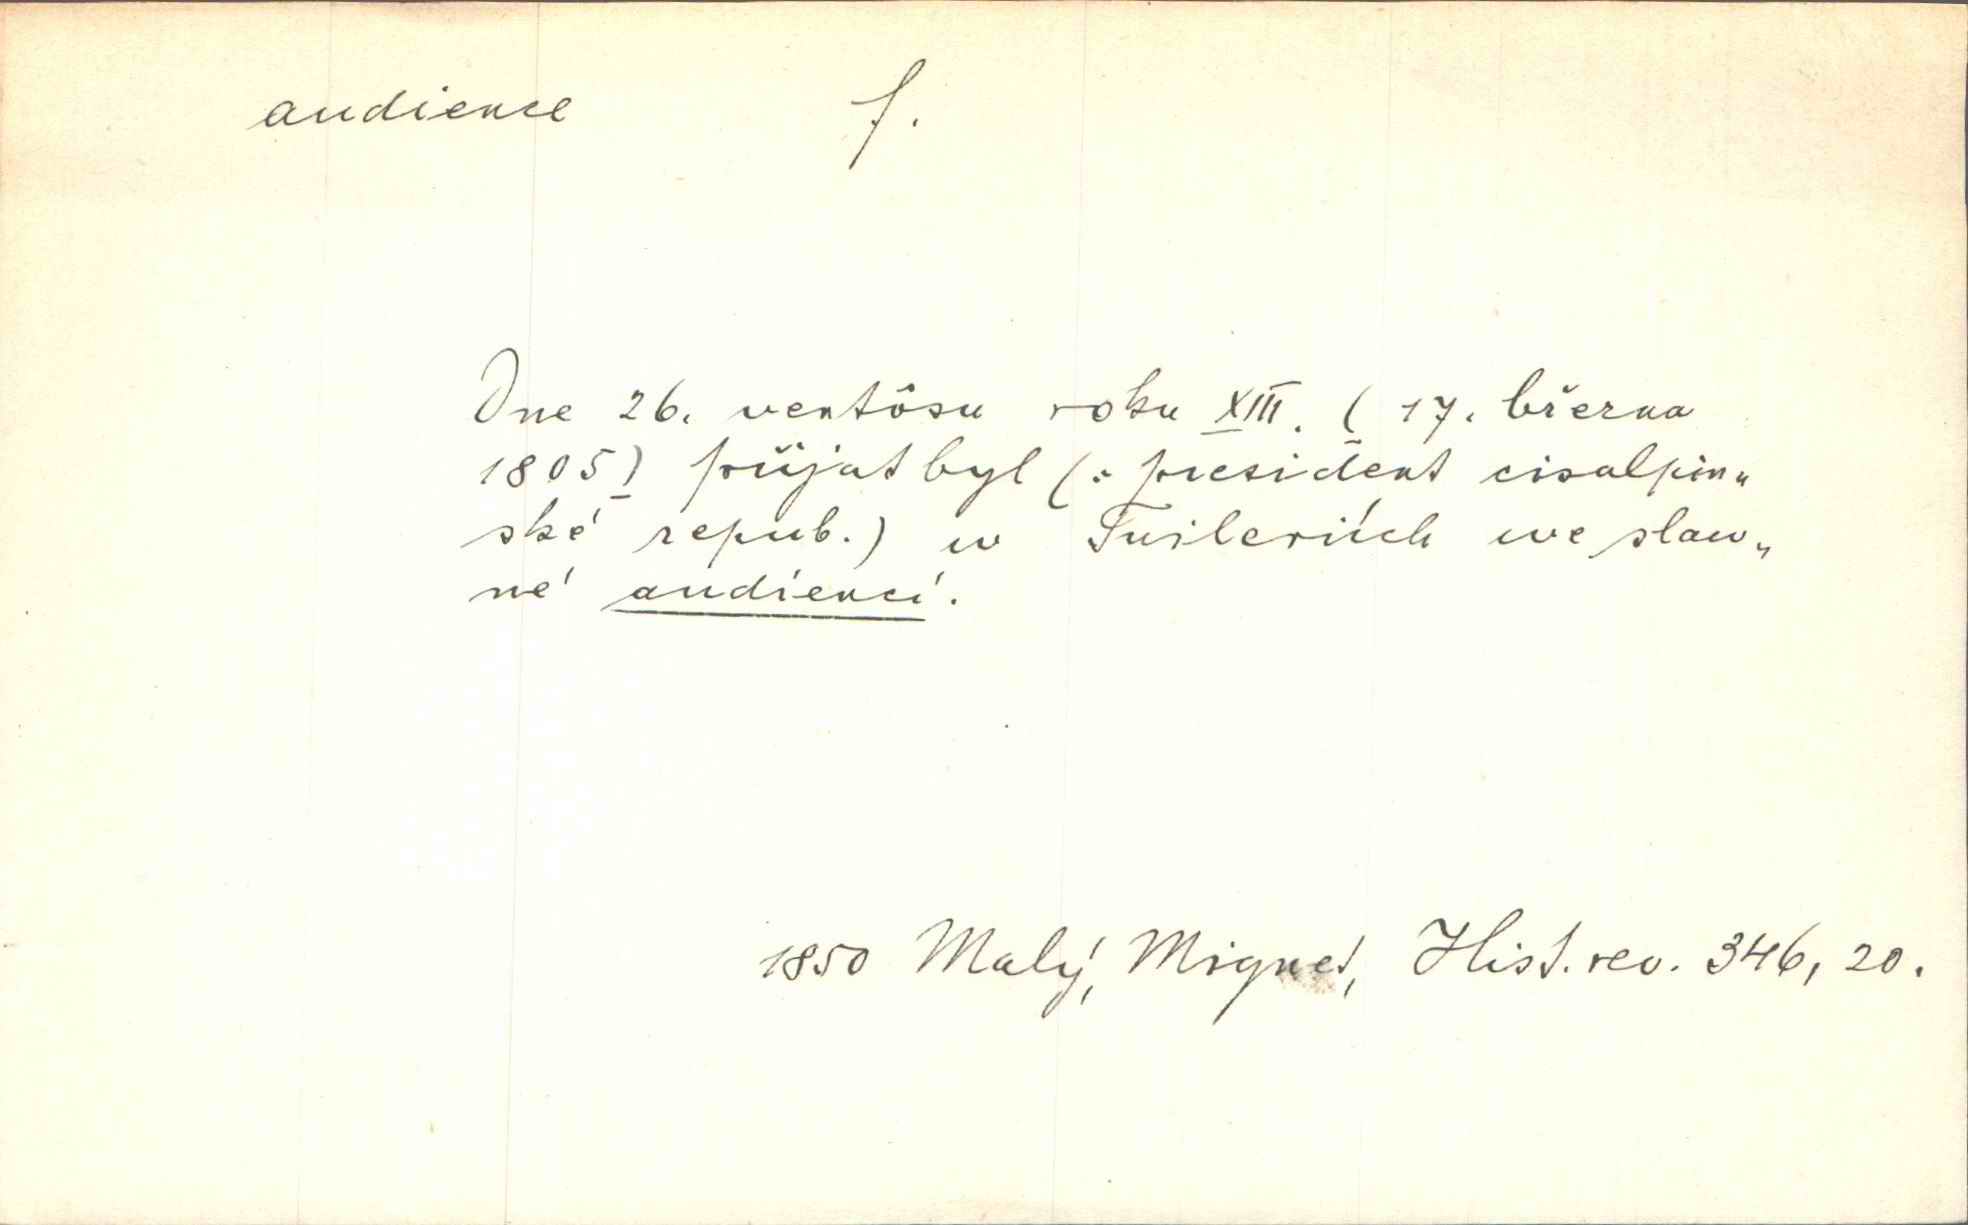 audience f.
Dne 26. ventôsu roku XIII. ( 17. března
1805) přijat byl (: president cisalpin„
ské repub.) w Tuileriích we slaw„
né audiencí.
1850 Malý, Mignet, Hist. rev. 346, 20.